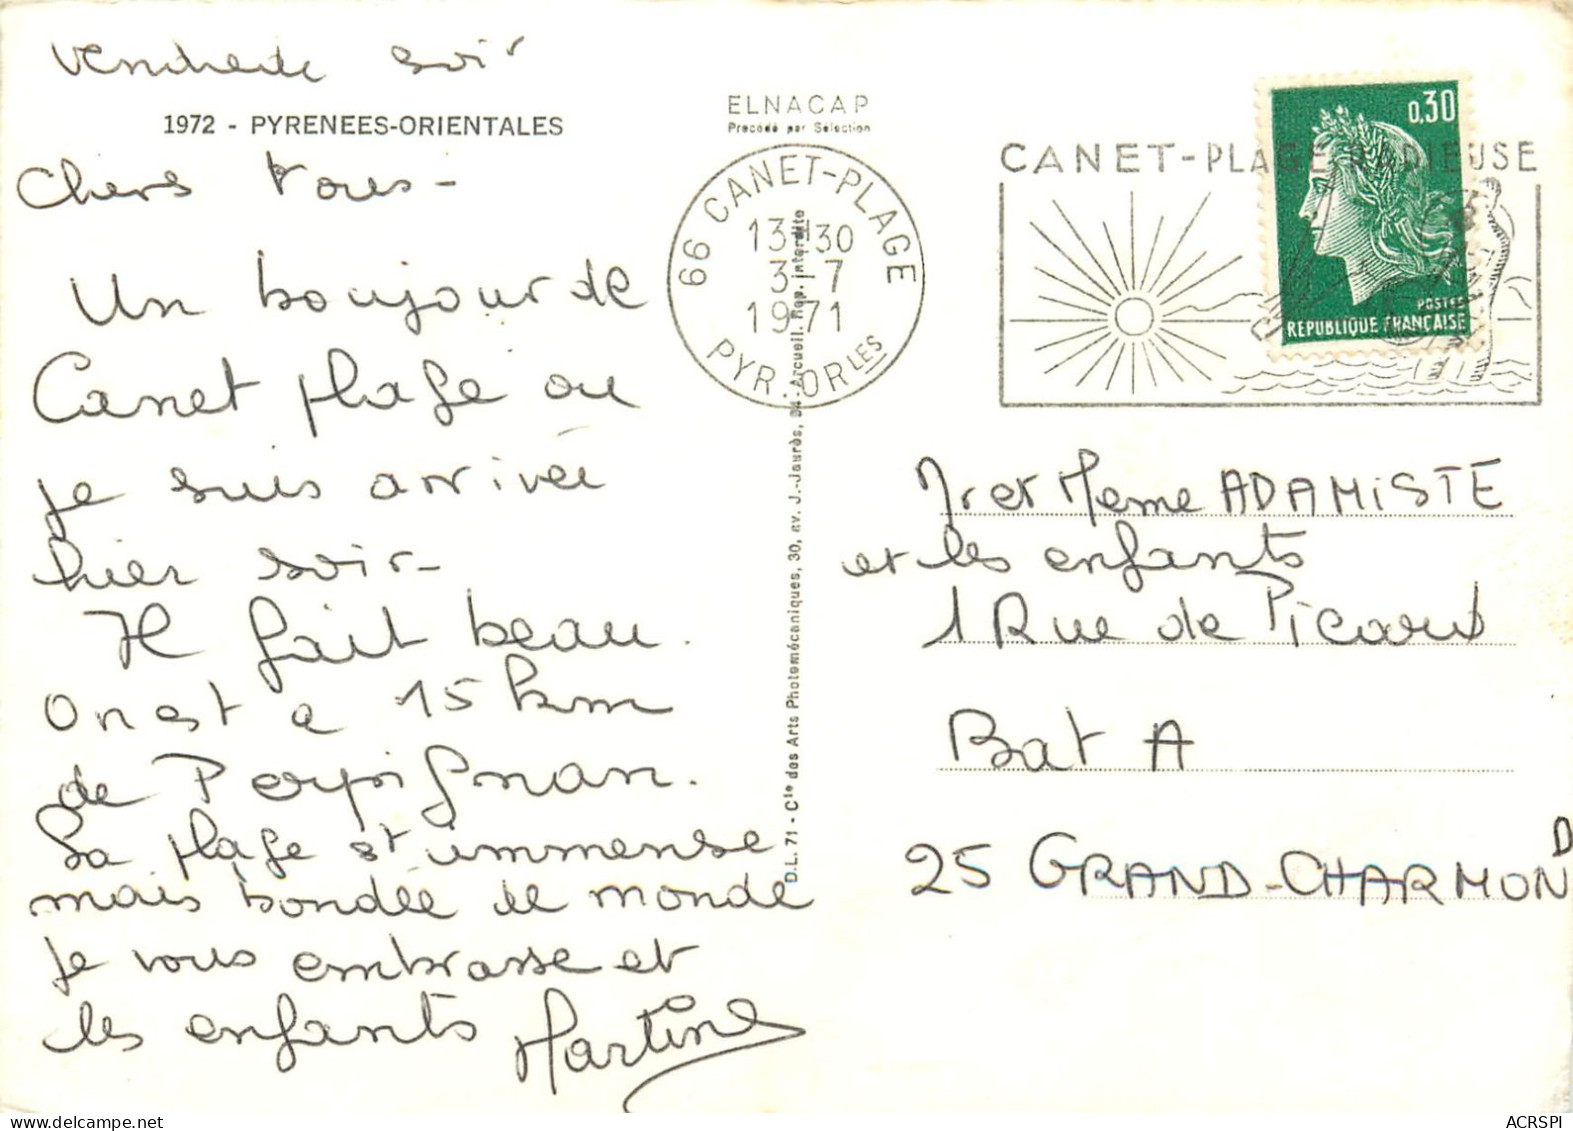 Vendredi soir
1972 - PYRENEES-ORIENTALES
Chers Tous -
Un bonjour de
Canet plage ou
je suis arrivée
hier soir -
Il fait beau.
On est a 15 km
de Perpignan.
La plage est immense
mais bondée de monde
je vous embrasse et
les enfants Martine
ELNACAP
Procédé par Sélection
66 CANET-PLAGE
13H30
3-7
1971
PYR.-ORLES
D.L. 71 - Cie des Arts Photomécaniques, 30, av. J.-Jaurès, 94-Arcueil. Rep. interdite
CANET-PLAGE RADIEUSE
0,30
POSTES
REPUBLIQUE FRANÇAISE
Mr et Meme ADAMISTE
et les enfants
1 Rue de Picard
Bat A
25 GRAND-CHARMOND
ACRSPI